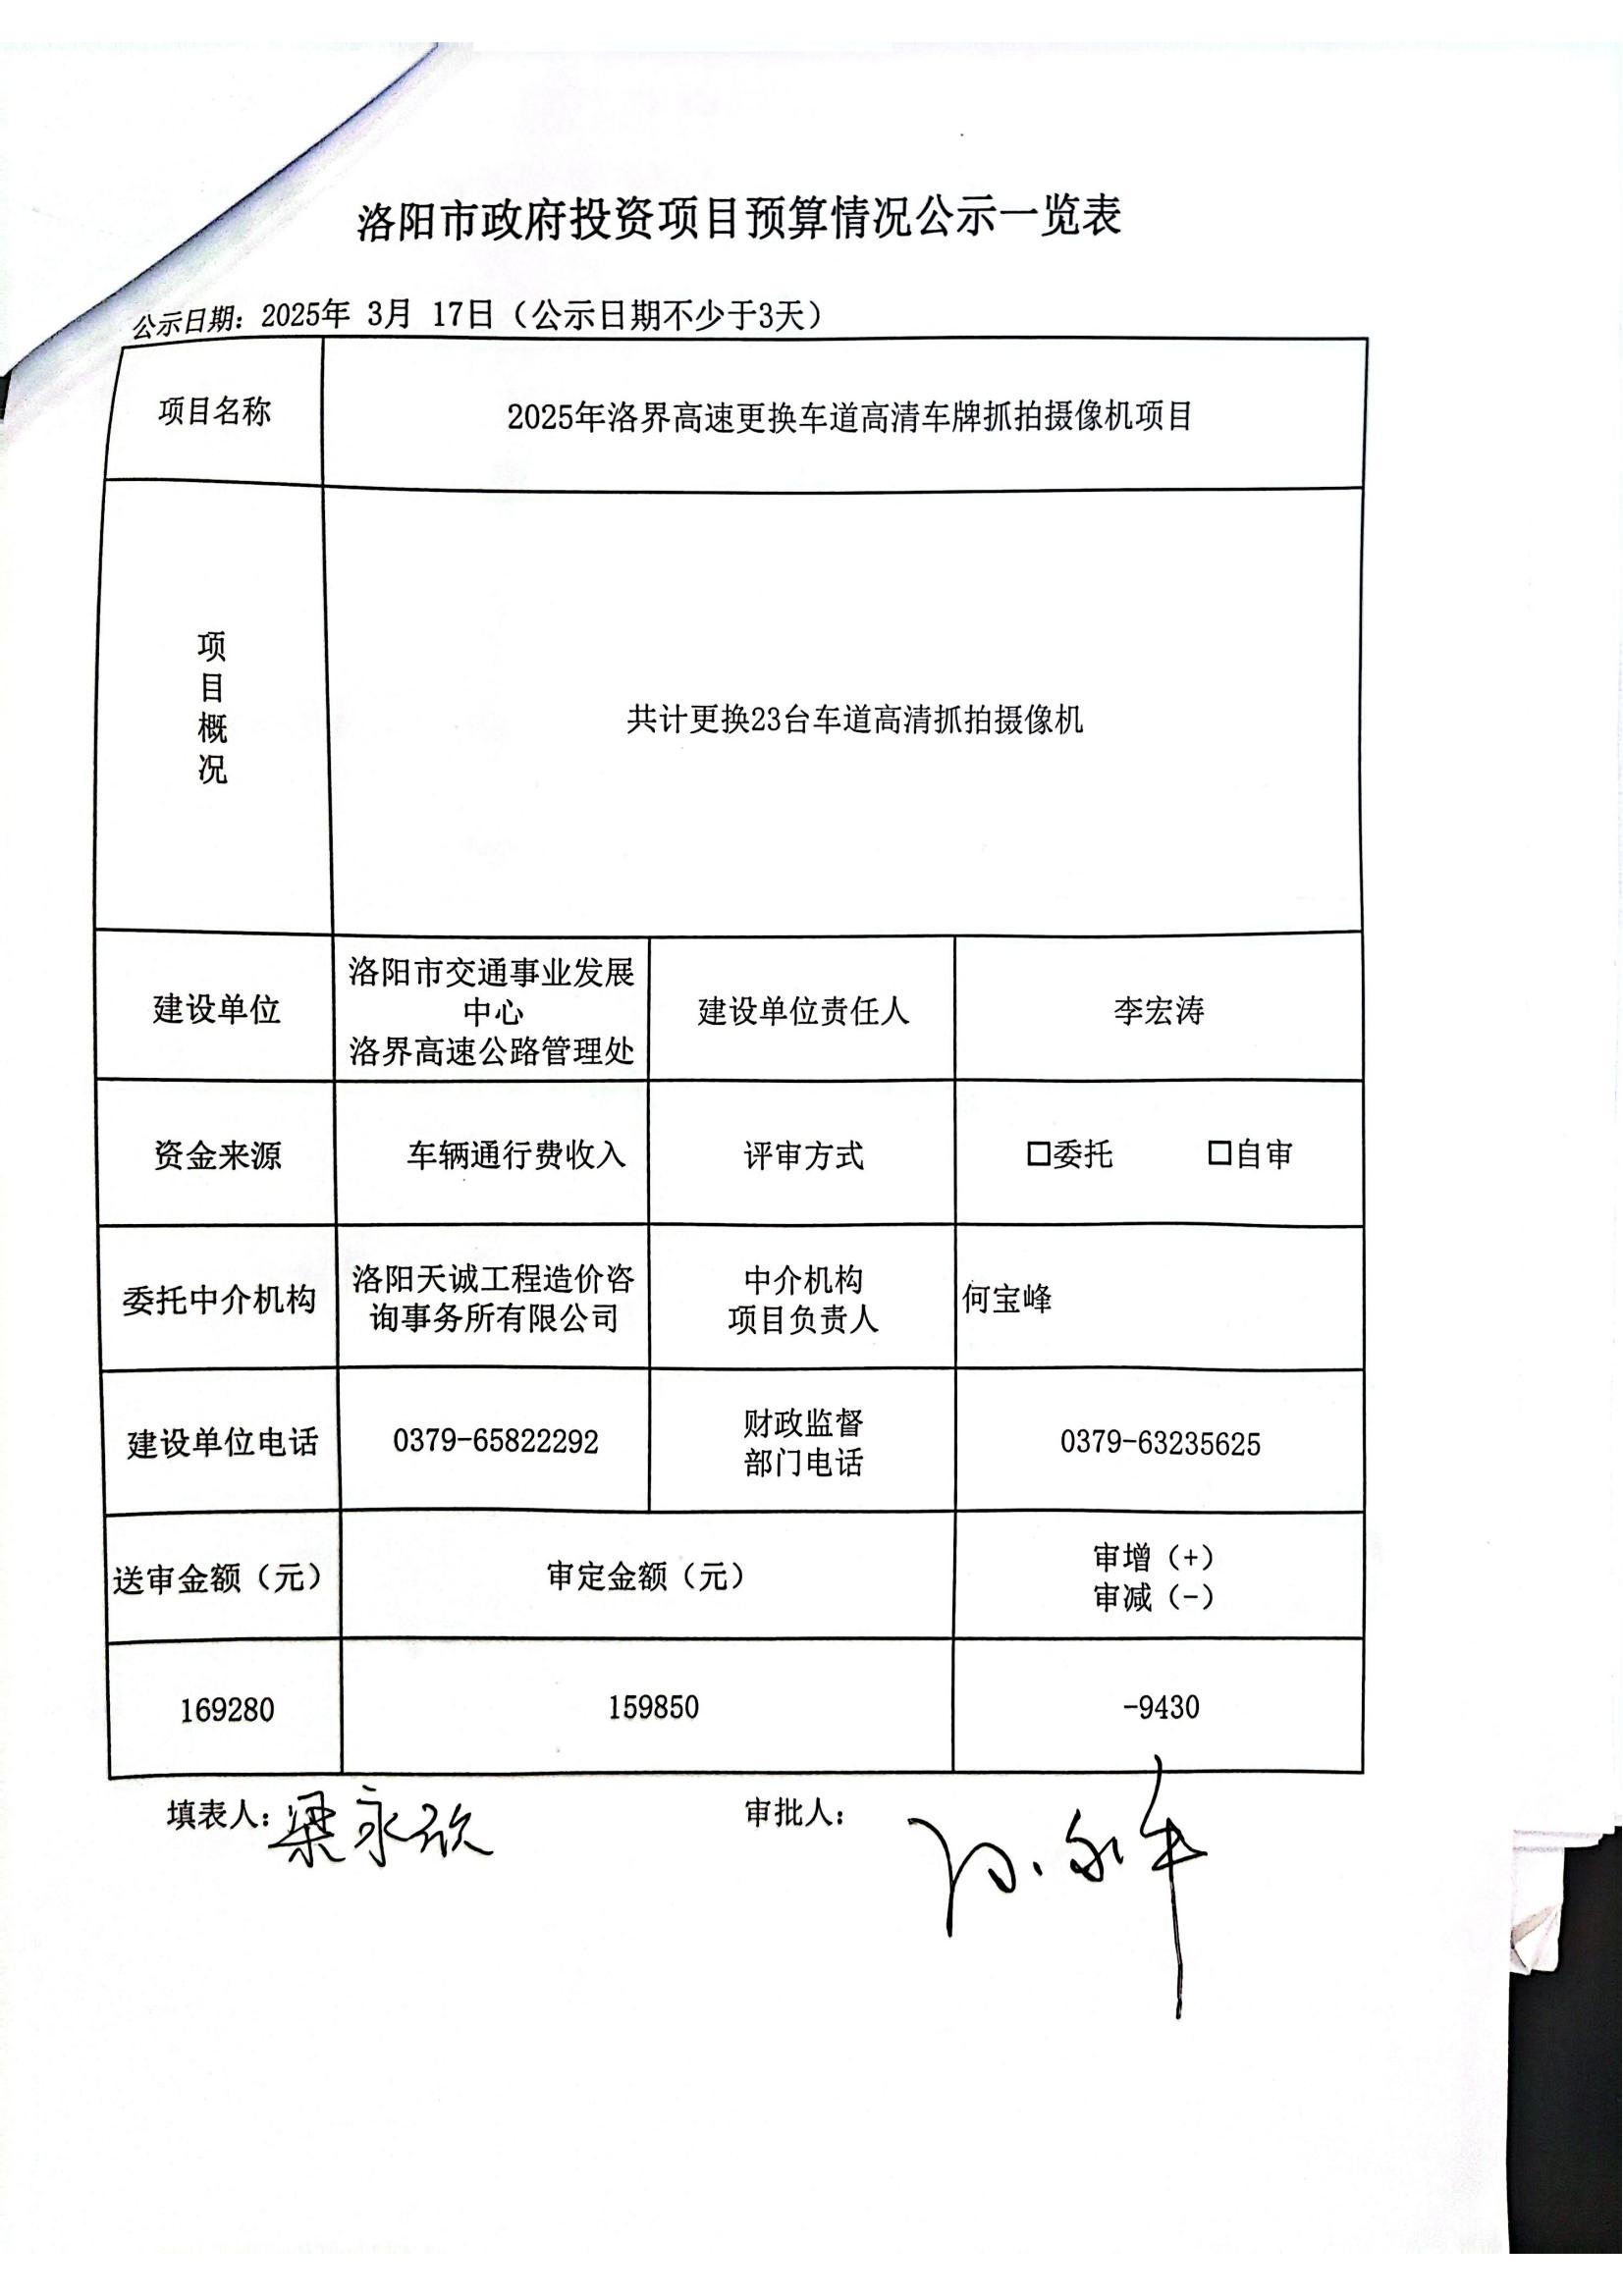 洛阳市政府投资项目预算情况公示一览表
公示日期：2025年 3月 17日（公示日期不少于3天）
项目名称
2025年洛界高速更换车道高清车牌抓拍摄像机项目
项
目
概
况
共计更换23台车道高清抓拍摄像机
建设单位
洛阳市交通事业发展
中心
洛界高速公路管理处
建设单位责任人
李宏涛
资金来源
车辆通行费收入
评审方式
□委托 □自审
委托中介机构
洛阳天诚工程造价咨
询事务所有限公司
中介机构
项目负责人
何宝峰
建设单位电话
0379-65822292
财政监督
部门电话
0379-63235625
送审金额（元）
审定金额（元）
审增（+）
审减（-）
169280
159850
-9430
填表人：梁永欣
审批人：